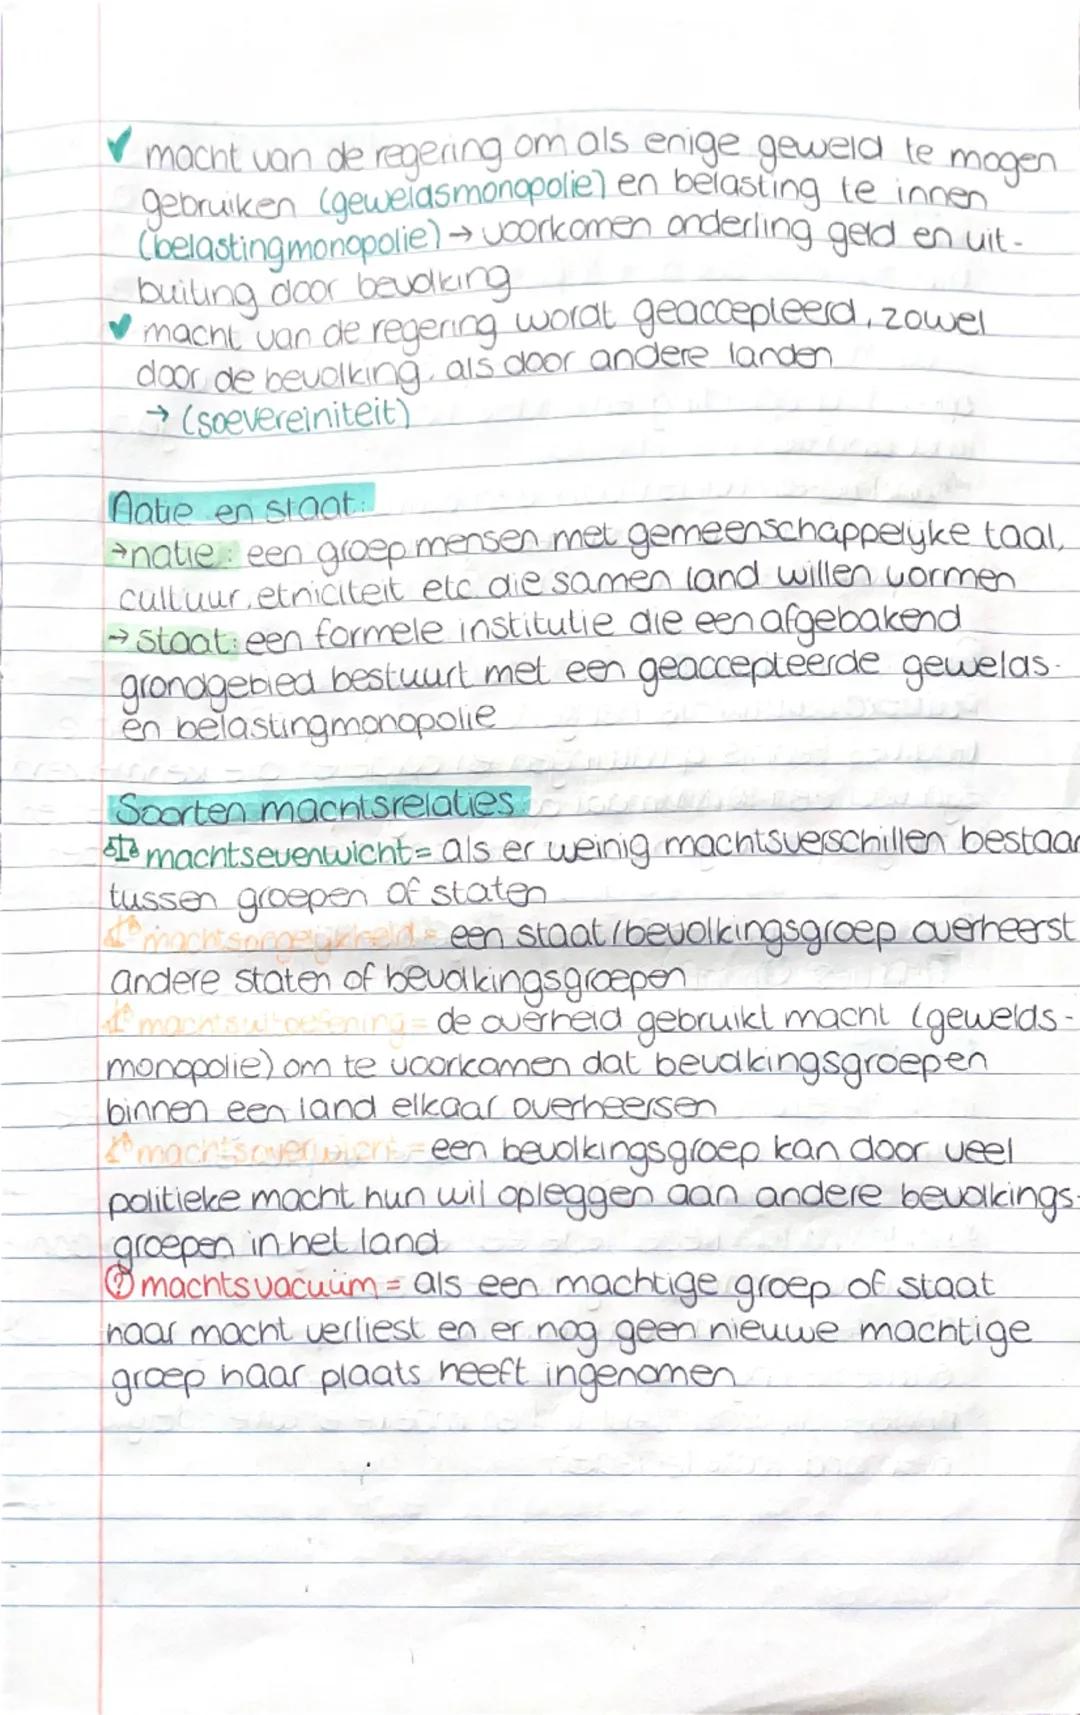 ✓ macht van de regering om als enige geweld te mogen
gebruiken (geweldsmonopolie) en belasting te innen
(belastingmonopolie) → voorkomen onderling geld en uit-
buiting door bevolking
✓ macht van de regering wordt geaccepteerd, zowel
door de bevolking, als door andere landen
→ (soevereiniteit)
Natie en staat:
→ natie: een groep mensen met gemeenschappelijke taal,
cultuur, etniciteit etc. die samen land willen vormen
→ staat: een formele institutie die een afgebakend
grondgebied bestuurt met een geaccepteerde gewelds-
en belastingmonopolie
Soorten machtsrelaties:
machtsevenwicht = als er weinig machtsverschillen bestaan
tussen groepen of staten
machtsongelijkheid = een staat/bevolkingsgroep overheerst
andere staten of bevolkingsgroepen
machtsuitoefening = de overheid gebruikt macht (gewelds-
monopolie) om te voorkomen dat bevolkingsgroepen
binnen een land elkaar overheersen
machtsoverwicht = een bevolkingsgroep kan door veel
politieke macht hun wil opleggen aan andere bevolkings-
groepen in het land
? machtsvacuüm = als een machtige groep of staat
haar macht verliest en er nog geen nieuwe machtige
groep haar plaats heeft ingenomen